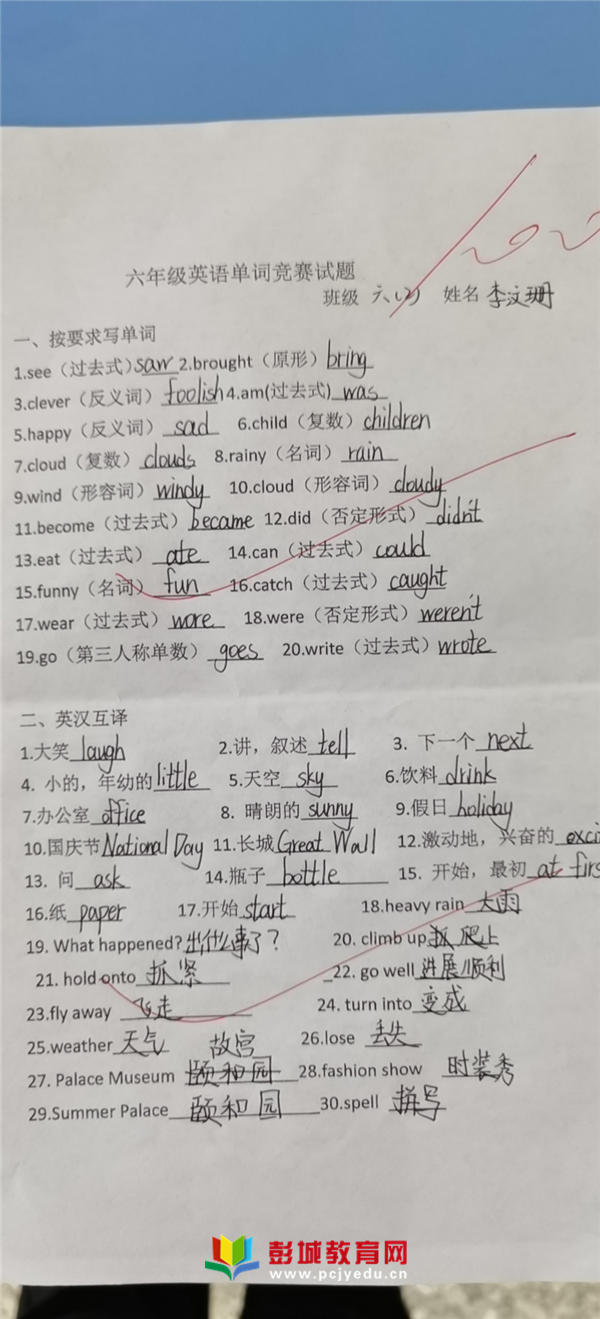 100
六年级英语单词竞赛试题
班级 六(2) 姓名 李汶珊
一、按要求写单词
1.see（过去式）saw 2.brought（原形）bring
3.clever（反义词）foolish 4.am(过去式) was
5.happy（反义词）sad 6.child（复数）children
7.cloud（复数）clouds 8.rainy（名词）rain
9.wind（形容词）windy 10.cloud（形容词）cloudy
11.become（过去式）became 12.did（否定形式）didn't
13.eat（过去式）ate 14.can（过去式）could
15.funny（名词）fun 16.catch（过去式）caught
17.wear（过去式）wore 18.were（否定形式）weren't
19.go（第三人称单数）goes 20.write（过去式）wrote
二、英汉互译
1.大笑 laugh 2.讲，叙述 tell 3. 下一个 next
4. 小的，年幼的 little 5.天空 sky 6.饮料 drink
7.办公室 office 8. 晴朗的 sunny 9.假日 holiday
10.国庆节 National Day 11.长城 Great Wall 12.激动地，兴奋的 exci
13. 问 ask 14.瓶子 bottle 15. 开始，最初 at firs
16.纸 paper 17.开始 start 18.heavy rain 大雨
19. What happened? 出什么事了？ 20. climb up 爬上
21. hold onto 抓紧 22. go well 进展顺利
23.fly away 飞走 24. turn into 变成
25.weather 天气 故宫 26.lose 丢失
27. Palace Museum 颐和园 28.fashion show 时装秀
29.Summer Palace 颐和园 30.spell 拼写
彭城教育网
www.pcjyedu.cn